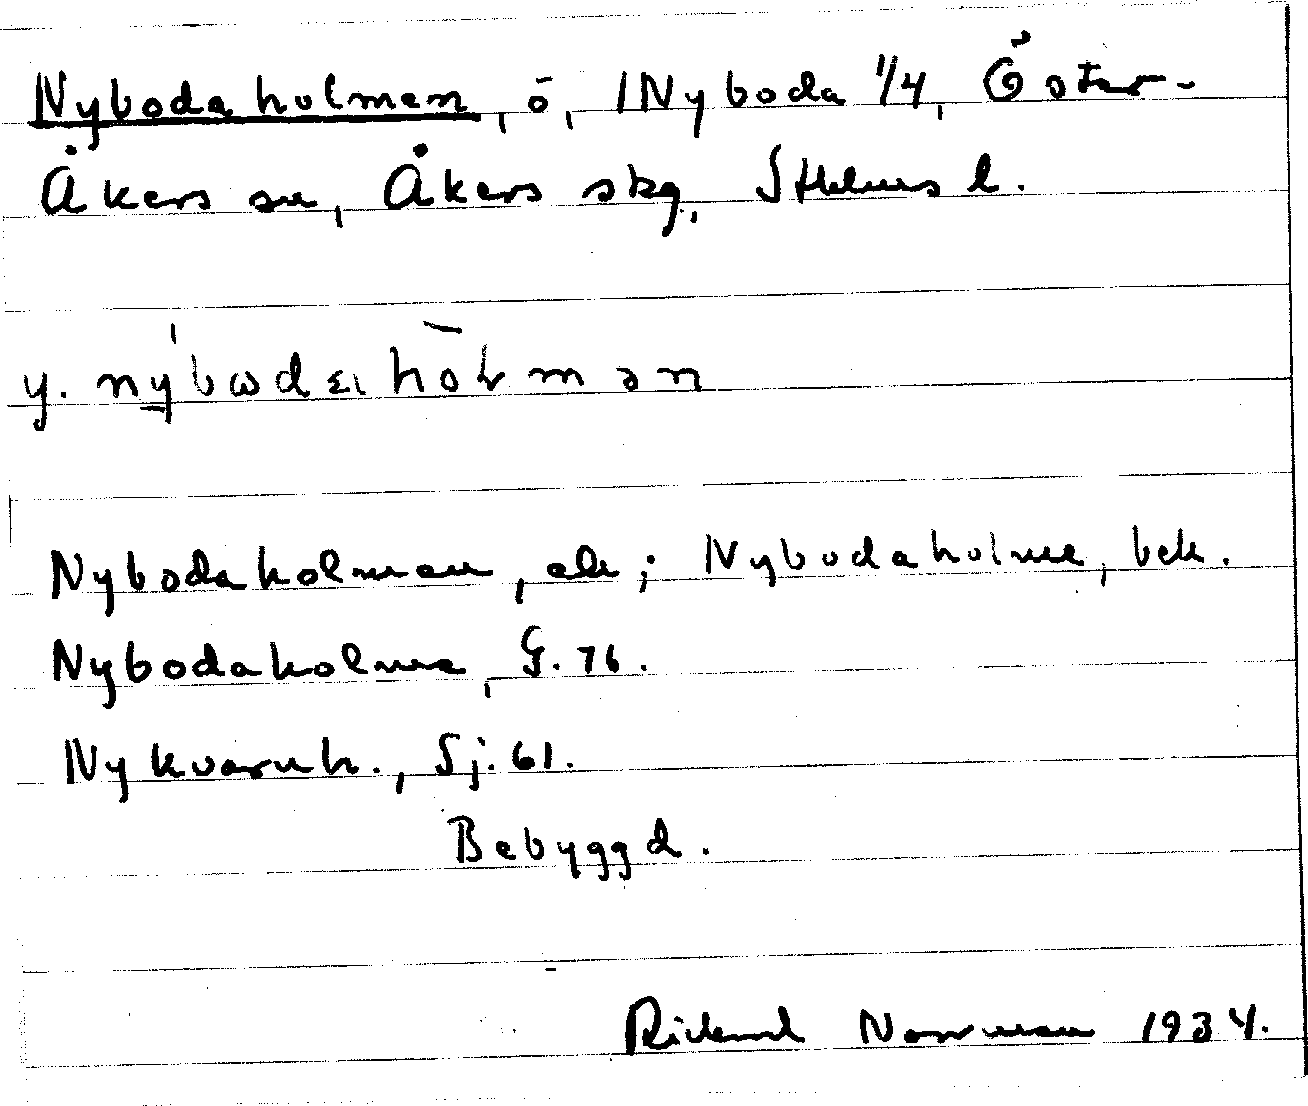 Nybodaholmen, ö, Nyboda 1/4, Öster-
Åkers sn, Åkers skg, Sthlms l.
y. nybωdaholmən
Nybodaholmen, ek; Nybodaholme, bek.
Nybodaholme, G. 76.
Nykvarnh., Sj. 61.
Bebyggd.
Rickard Norrman 1934.